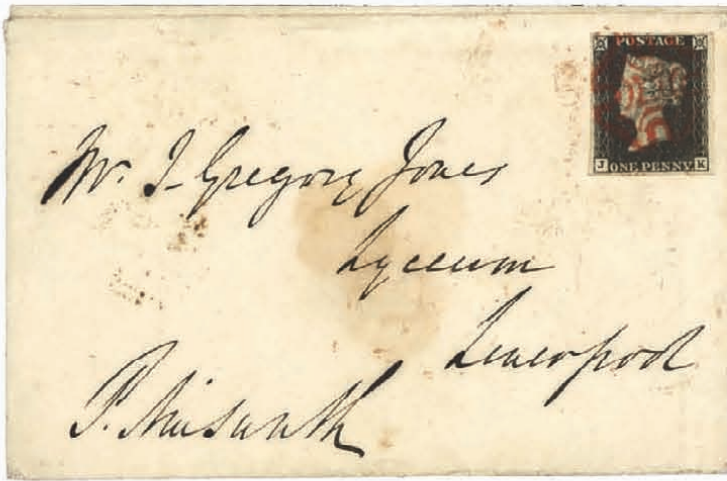 POSTAGE
J ONE PENNY K
Mr. J. Gregory Jones
Lyceum
Liverpool